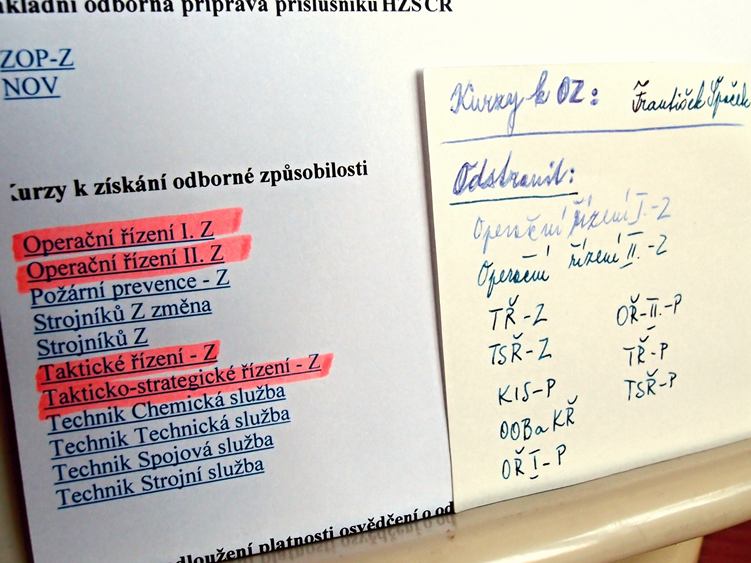 ákladní odborná příprava příslušníků HZS ČR
ZOP-Z
NOV
Kurzy k získání odborné způsobilosti
Operační řízení I. Z
Operační řízení II. Z
Požární prevence - Z
Strojníků Z změna
Strojníků Z
Taktické řízení - Z
Takticko-strategické řízení - Z
Technik Chemická služba
Technik Technická služba
Technik Spojová služba
Technik Strojní služba
dloužení platnosti osvědčení o od
Kurzy k OZ: František Špaček
Odstranit:
Operační řízení I.-Z
Operační řízení II.-Z
TŘ-Z
TSŘ-Z
KIS-P
OOBaKŘ
OŘ I-P
OŘ-II.-P
TŘ-P
TSŘ-P